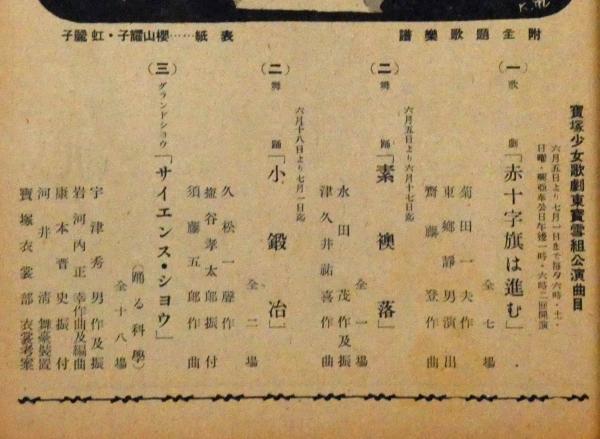 K.河
附 全 主 題 歌 樂 譜
表 紙……櫻山讙子・虹麗子
寶塚少女歌劇東寶雪組公演曲目
六月五日より七月一日まで毎夕六時・土・
日曜・興亞奉公日午後一時・六時二回開演
(一) 歌 劇「赤十字旗は進む」
全 七 場
菊田一夫作
東鄕靜男演出
齋藤登作曲
(二) 舞 踊「素 襖 落」
六月五日より六月十七日迄
全 一 場
水田茂作及振
津久井祐喜作曲
(二) 舞 踊「小 鍛 冶」
六月十八日より七月一日迄
全 二 場
久松一聲作
楳谷孝太郎振付
須藤五郎作曲
(三) グランドショウ「サイエンス・ショウ」
(踊る科學)
全十八場
宇津秀男作及振
岩河内正幸作曲及編曲
康本晋史振付
河井淸舞臺裝置
寶塚衣裳部衣裳考案